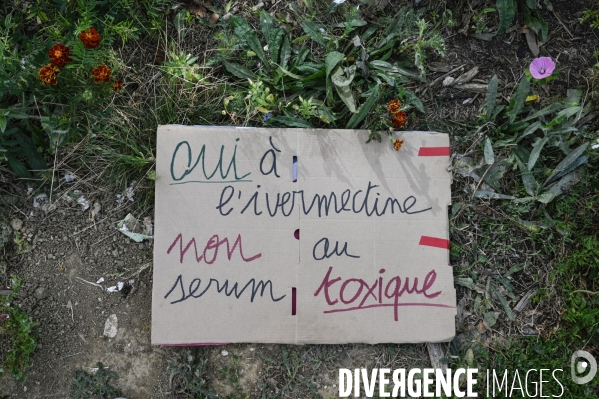 oui à
l'ivermectine
non au
serum toxique
DIVERGENCE IMAGES